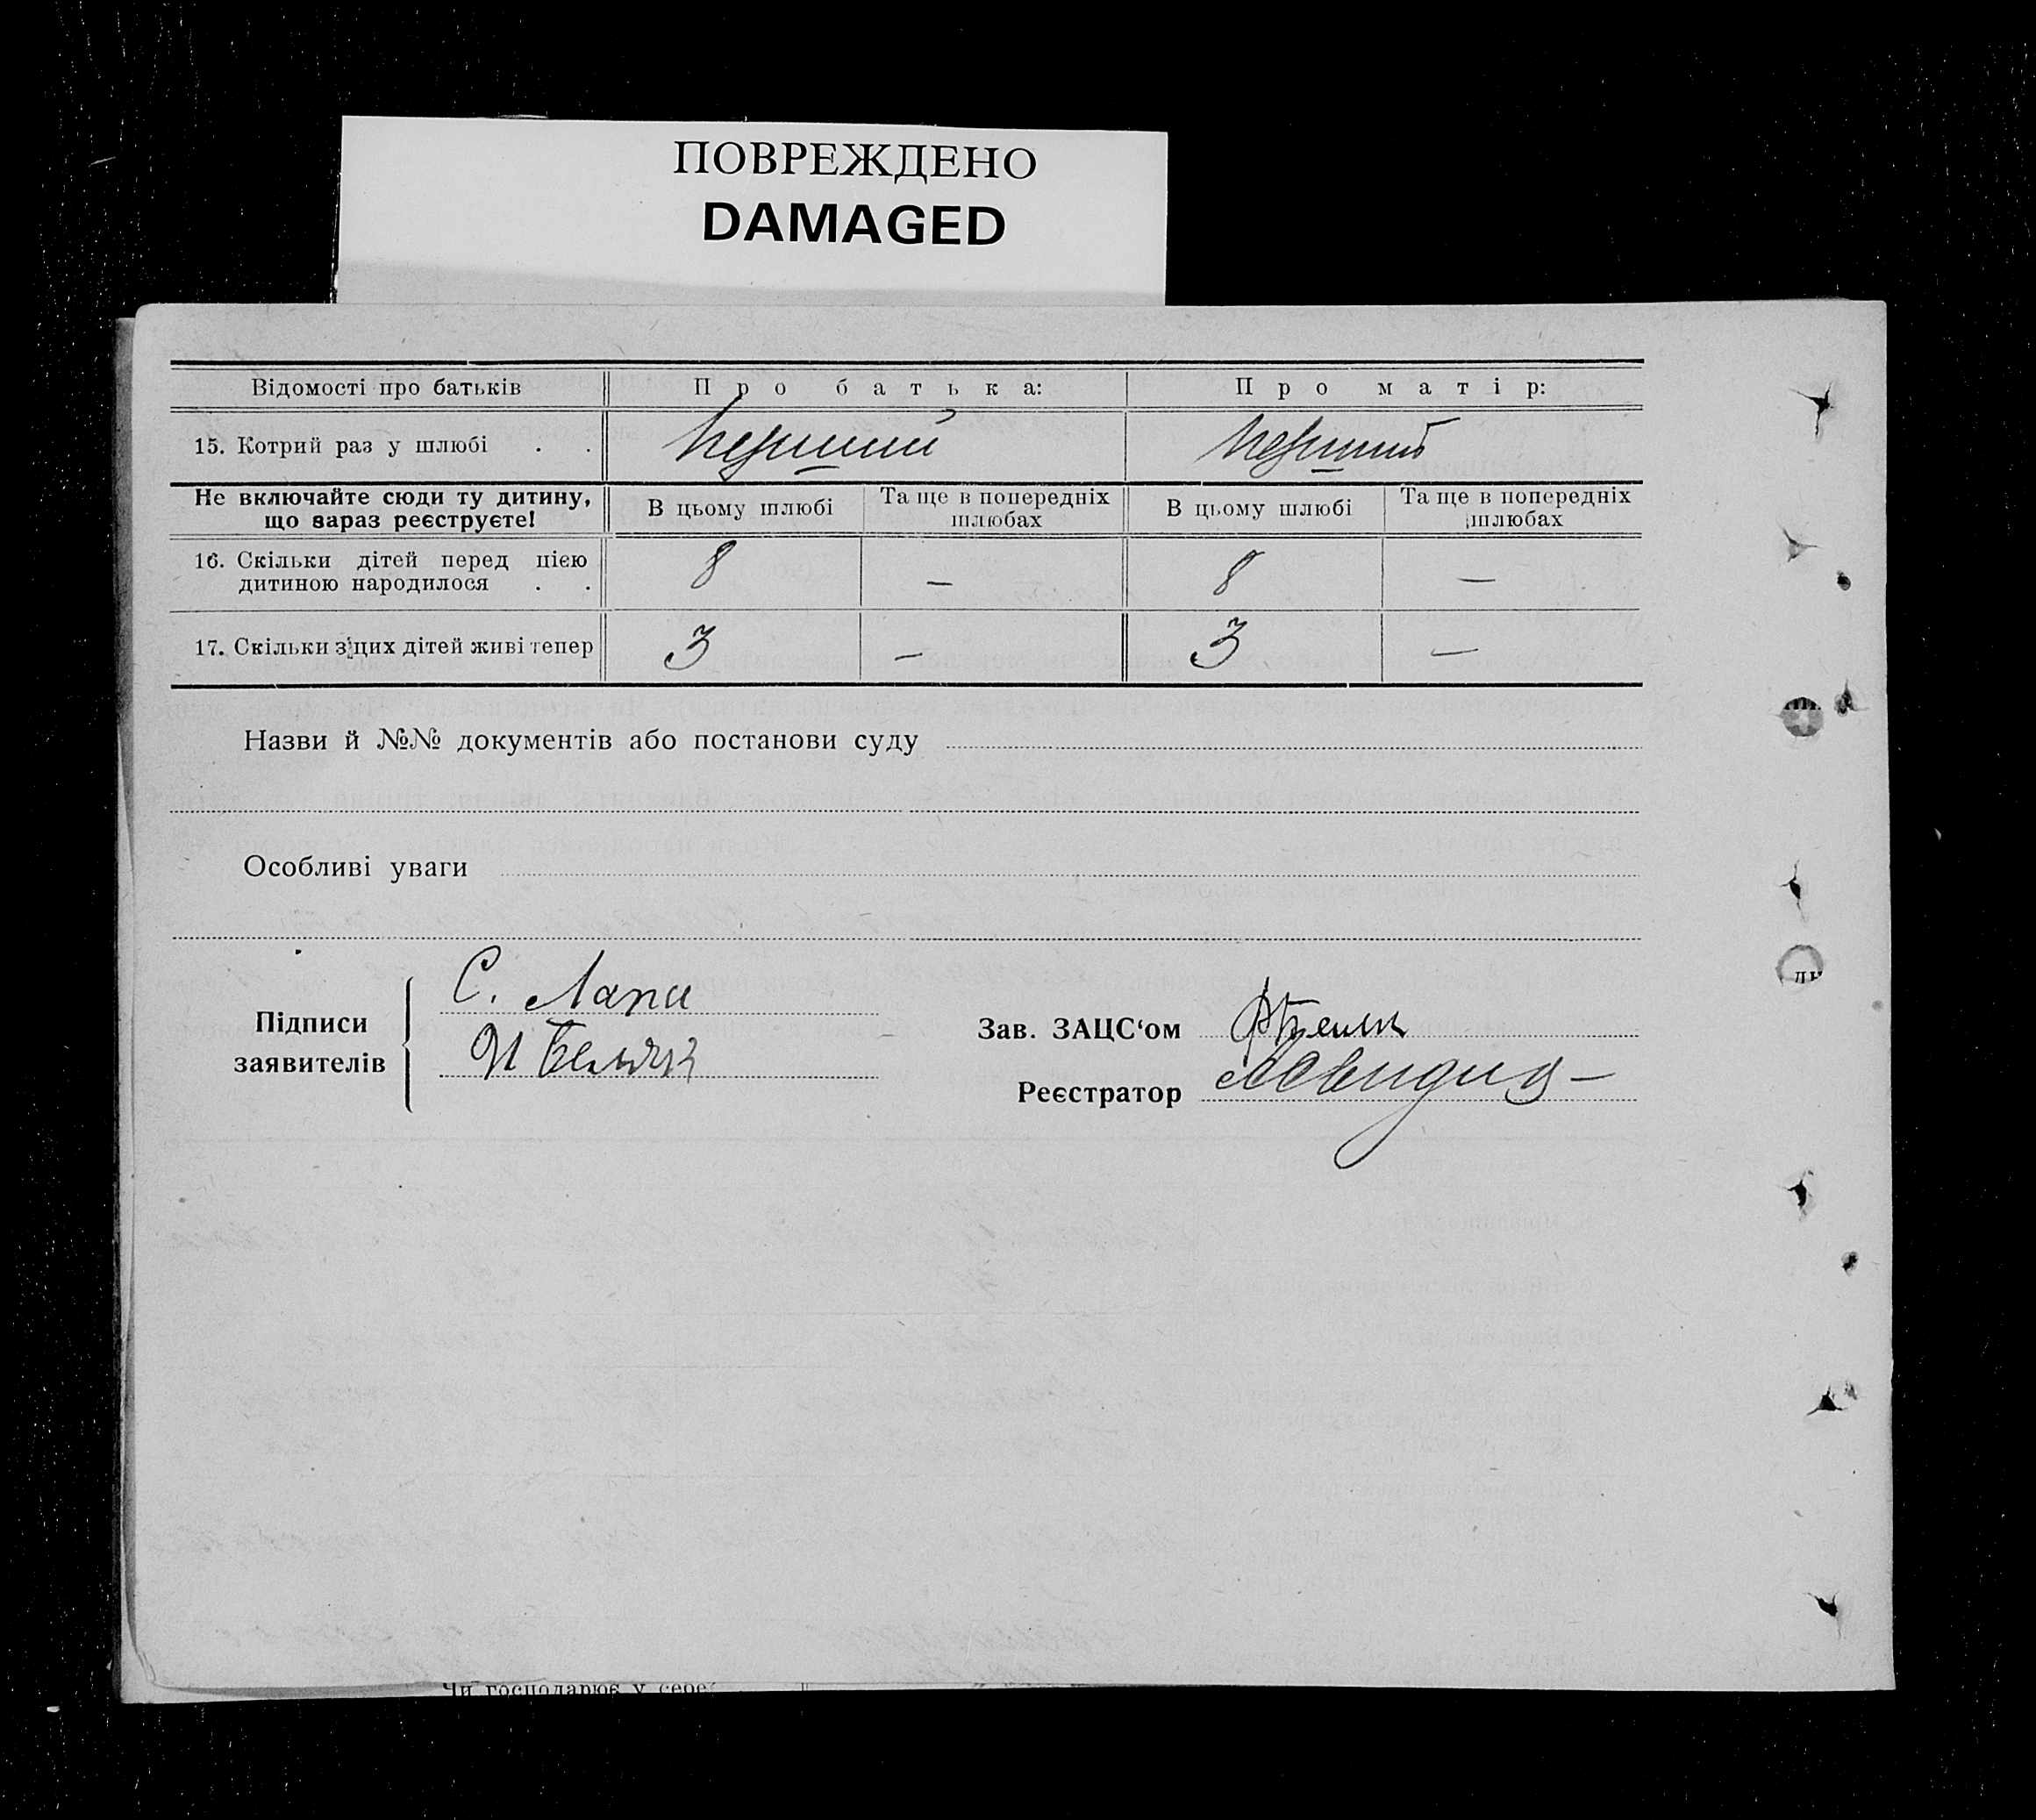 ПОВРЕЖДЕНО
DAMAGED
Відомості про батьків Про батька: Про матір:
15. Котрий раз у шлюбі . . перший перший
Не включайте сюди ту дитину, що зараз реєструєте! В цьому шлюбі Та ще в попередніх шлюбах В цьому шлюбі Та ще в попередніх шлюбах
16. Скільки дітей перед цією дитиною народилося . . 8 — 8 —
17. Скільки з цих дітей живі тепер 3 — 3 —
Назви й №№ документів або постанови суду
Особливі уваги
Підписи заявителів
С. Лапа
И
Зав. ЗАЦС‘ом
Реєстратор
Чи господарює у сере